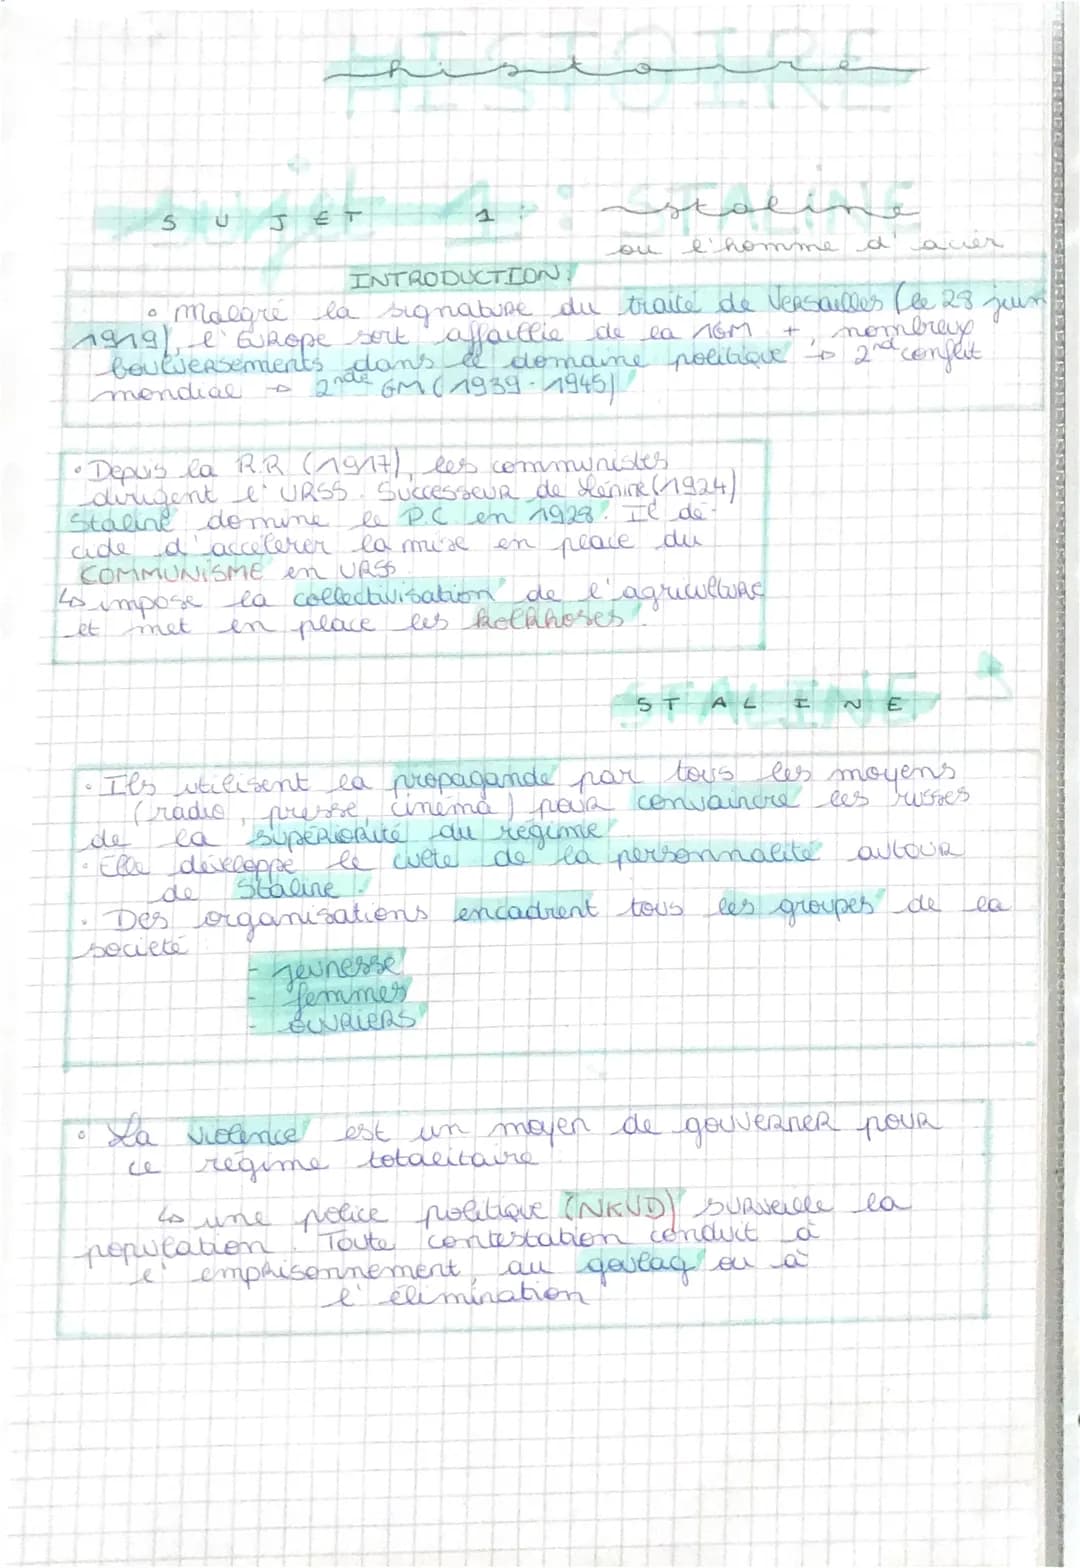 HISTOIRE
histoire
SUJET 1 : STALINE
staline
ou l'homme d'acier
INTRODUCTION:
• Malgré la signature du traité de Versailles (le 28 juin
1919), l'Europe sort affaiblie de la 1GM + nombreux
bouleversements dans le domaine politique → 2nd conflit
mondial → 2nde GM (1939-1945)
• Depuis la R.R (1917), les communistes
dirigent l'URSS. Successeur de Lénine (1924)
Staline domine le P.C en 1928. Il dé-
cide d'accélerer la mise en place du
COMMUNISME en URSS.
↳ impose la collectivisation de l'agriculture
et met en place les kolkhoses.
STALINE
• Ils utilisent la propagande par tous les moyens
(radio, presse, cinéma) pour convaincre les russes
de la supériorité du régime
• Elle développe le culte de la personnalité autour
de Staline.
• Des organisations encadrent tous les groupes de la
société
- jeunesse
- femmes
- ouvriers
• La violence est un moyen de gouverner pour
ce régime totalitaire
↳ une police politique (NKVD) surveille la
population. Toute contestation conduit à
l'emprisonnement, au goulag ou à
l'élimination